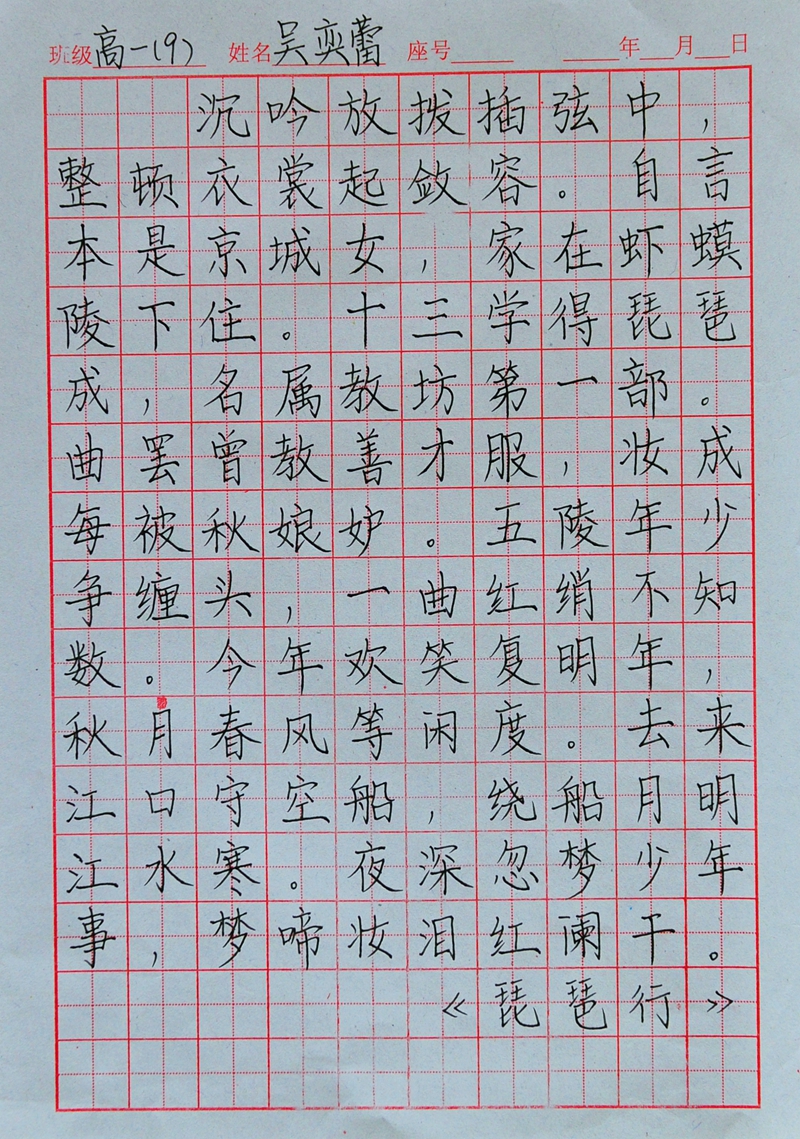 班级 高一(9) 姓名 吴奕蕾 座号 年 月 日
沉吟放拨插弦中，
整顿衣裳起敛容。自言
本是京城女，家在虾蟆
陵下住。十三学得琵琶
成，名属教坊第一部。
曲罢曾教善才服，妆成
每被秋娘妒。五陵年少
争缠头，一曲红绡不知
数。今年欢笑复明年，
秋月春风等闲度。去来
江口守空船，绕船月明
江水寒。夜深忽梦少年
事，梦啼妆泪红阑干。
《琵琶行》